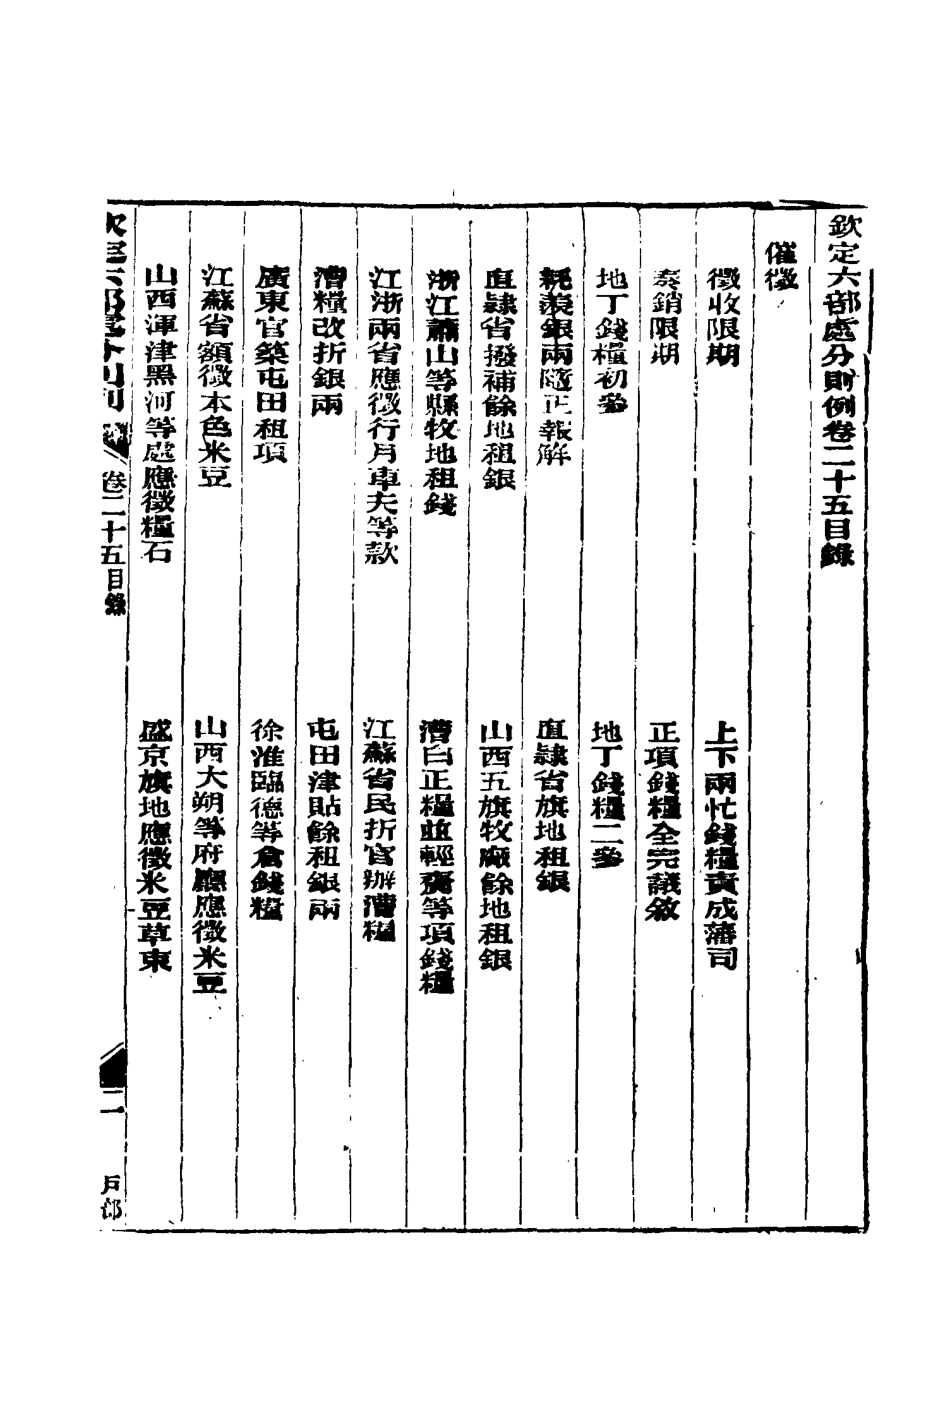 欽定六部處分則例卷二十五目錄
催徵
徵收限期
上下兩忙錢糧責成藩司
奏銷限期
正項錢糧全完議敘
地丁錢糧初參
地丁錢糧二參
耗羨銀兩隨正報解
直隸省旗地租銀
直隸省撥補餘地租銀
山西五旗牧廠餘地租銀
浙江蕭山等縣牧地租錢
漕白正糧並輕賚等項錢糧
江浙兩省應徵行月車夫等款
江蘇省民折官辦漕糧
漕糧改折銀兩
屯田津貼餘租銀兩
廣東官築屯田租項
徐淮臨德等倉錢糧
江蘇省額徵本色米豆
山西大朔等府廳應徵米豆
山西渾津黑河等處應徵糧石
盛京旗地應徵米豆草束
欽定六部處分則例 卷二十五目錄 二 戶部